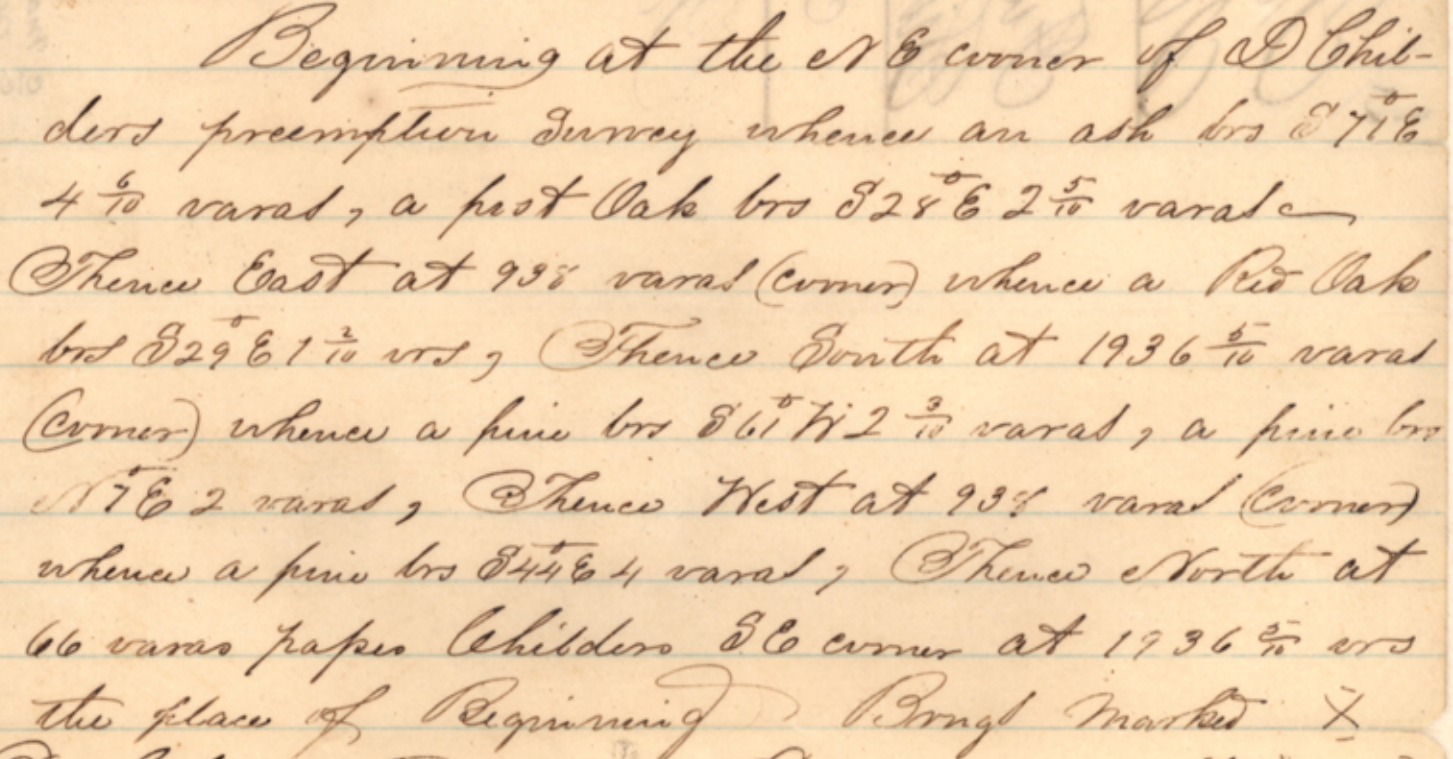 Beginning at the N E corner of D Chil-
ders preemption Survey whence an ash brs S 71° E
4 6/10 varas, a post Oak brs S 28° E 2 5/10 varas
Thence East at 938 varas (corner) whence a Red Oak
brs S 29° E 1 2/10 vrs, Thence South at 1936 5/10 varas
(corner) whence a pine brs S 61° W 2 3/10 varas, a pine brs
N 7° E 2 varas, Thence West at 938 varas (corner)
whence a pine brs S 44° E 4 varas, Thence North at
66 varas passes Childers S E corner at 1936 5/10 vrs
the place of Beginning Brngs Marked X